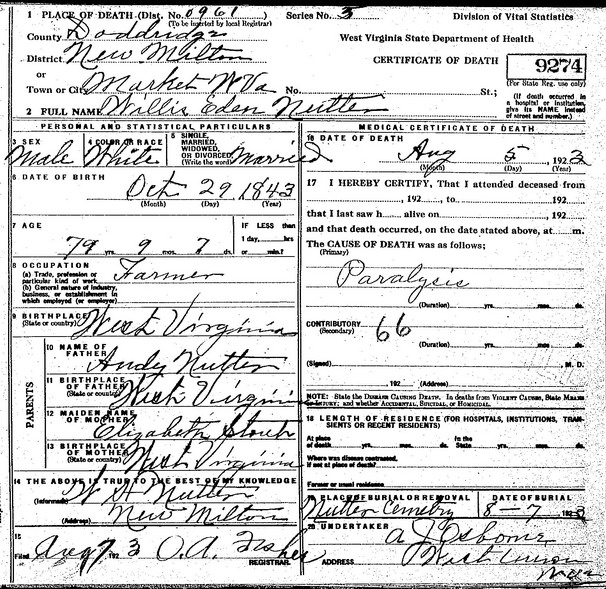 1 PLACE OF DEATH (Dist. No. 0961 Series No. 3 Division of Vital Statistics
(To be inserted by local Registrar)
County Doddridge West Virginia State Department of Health
District New Milton CERTIFICATE OF DEATH 9274
or (For State Reg. use only)
Town or City Market W Va No. St.;
(If death occurred in a hospital or institution, give its NAME instead of street and number.)
2 FULL NAME Willis Eden Nutter
PERSONAL AND STATISTICAL PARTICULARS
3 SEX Male
4 COLOR OR RACE White
5 SINGLE, MARRIED, WIDOWED, OR DIVORCED (Write the word) Married
6 DATE OF BIRTH
Oct 29, 1843
(Month) (Day) (Year)
7 AGE IF LESS than
79 yrs. 9 mos. 7 ds. 1 day, hrs
or min.?
8 OCCUPATION
(a) Trade, profession or particular kind of work. Farmer
(b) General nature of industry, business, or establishment in which employed (or employer)
9 BIRTHPLACE
(State or country) West Virginia
PARENTS
10 NAME OF FATHER Andy Nutter
11 BIRTHPLACE OF FATHER
(State or country) West Virginia
12 MAIDEN NAME OF MOTHER Elizabeth
13 BIRTHPLACE OF MOTHER
(State or country) West Virginia
14 THE ABOVE IS TRUE TO THE BEST OF MY KNOWLEDGE
(Informant) W H Nutter
(Address) New Milton
15
Filed Aug 7, 1923 O.A. Fisher
REGISTRAR.
MEDICAL CERTIFICATE OF DEATH
16 DATE OF DEATH
Aug 5, 1923
(Month) (Day) (Year)
17 I HEREBY CERTIFY, That I attended deceased from
, 192 , to , 192
that I last saw h alive on , 192
and that death occurred, on the date stated above, at m.
The CAUSE OF DEATH was as follows;
(Primary)
Paralysis
(Duration) yrs. mos. ds.
CONTRIBUTORY 66
(Secondary)
(Duration) yrs. mos. ds.
(Signed) M. D.
, 192 (Address)
NOTE: State the DISEASE CAUSING DEATH. In deaths from VIOLENT CAUSES, State MEANS
OF INJURY; and whether ACCIDENTAL, SUICIDAL, or HOMICIDAL.
18 LENGTH OF RESIDENCE (FOR HOSPITALS, INSTITUTIONS, TRANSIENTS OR RECENT RESIDENTS)
At place of death yrs. mos. ds. In the State yrs. mos. ds.
Where was disease contracted, if not at place of death?
Former or usual residence
19 PLACE OF BURIAL OR REMOVAL DATE OF BURIAL
Nutter Cemetry 8-7, 1923
20 UNDERTAKER A J Osborne
ADDRESS West Union
W Va